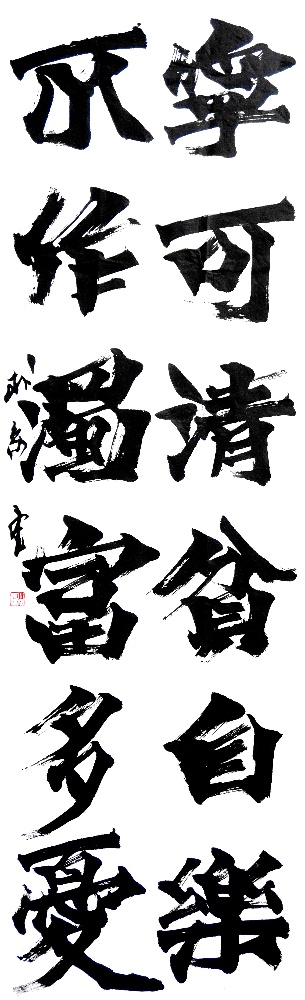 寧可清貧自樂
不作濁富多憂